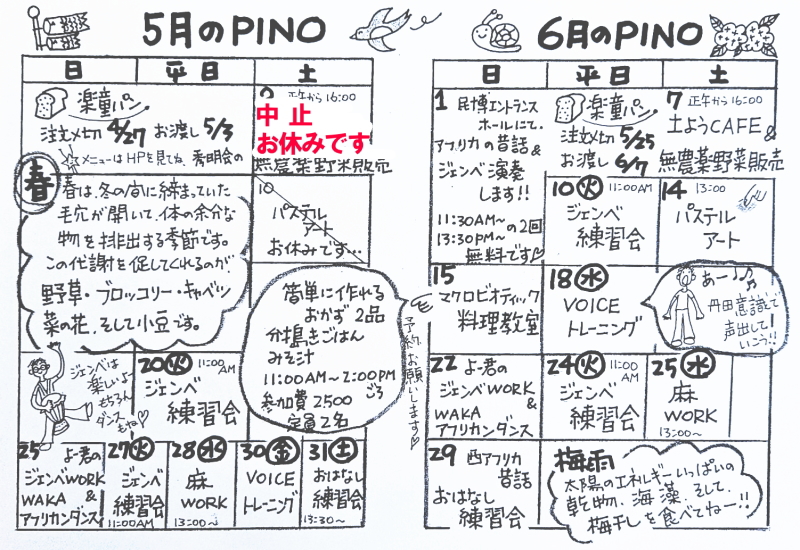 5月のPINO
日 平日 土
楽童パン
注文〆切 4/27 お渡し 5/3
メニューはHPを見てね。
正午から16:00
中止
お休みです
秀明会の
無農薬野米販売
春
春は、冬の旬に締まっていた
毛穴が開いて、体の余分な
物を排出する季節です。
この代謝を促してくれるのが、
野草・ブロッコリー・キャベツ
菜の花、そして小豆です。
10
パステル
アート
お休みです…
簡単に作れる
おかず 2品
分搗きごはん
みそ汁
11:00AM~2:00PM
ごろ
参加費 2500
定員2名
予約お願いします♡
ジェンベは
楽しいよ
もちろん
ダンス
もね♡
20 火 11:00AM
ジェンベ
練習会
25 よー君の
ジェンベWORK
WAKA &
アフリカンダンス
27 火
ジェンベ
練習会
11:00AM
28 水
麻
WORK
13:00~
30 金
VOICE
トレーニング
31 土
おはなし
練習会
13:30~
6月のPINO
日 平日 土
1 民博エントランス
ホールにて。
アフリカの昔話
&
ジェンベ演奏
します!!
11:30AM~
13:30PM~ の2回
無料です♡
楽童パン
注文〆切 5/25
お渡し 6/7
7 正午から16:00
土ようCAFE
&
無農薬野菜販売
10 火 11:00AM
ジェンベ
練習会
14 13:00
パステル
アート
15
マクロビオティック
料理教室
18 水
VOICE
トレーニング
あー♪♪
丹田意識で
声出して
いこう!!
22 よー君の
ジェンベWORK
&
WAKA
アフリカンダンス
24 火 11:00AM
ジェンベ
練習会
25 水
麻
WORK
13:00~
29 西アフリカ
昔話
おはなし
練習会
梅雨
太陽のエネルギーいっぱいの
乾物、海藻、そして、
梅干しを食べてねー!!